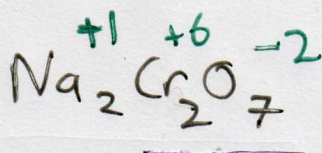 +1 +6 -2
Na₂Cr₂O₇